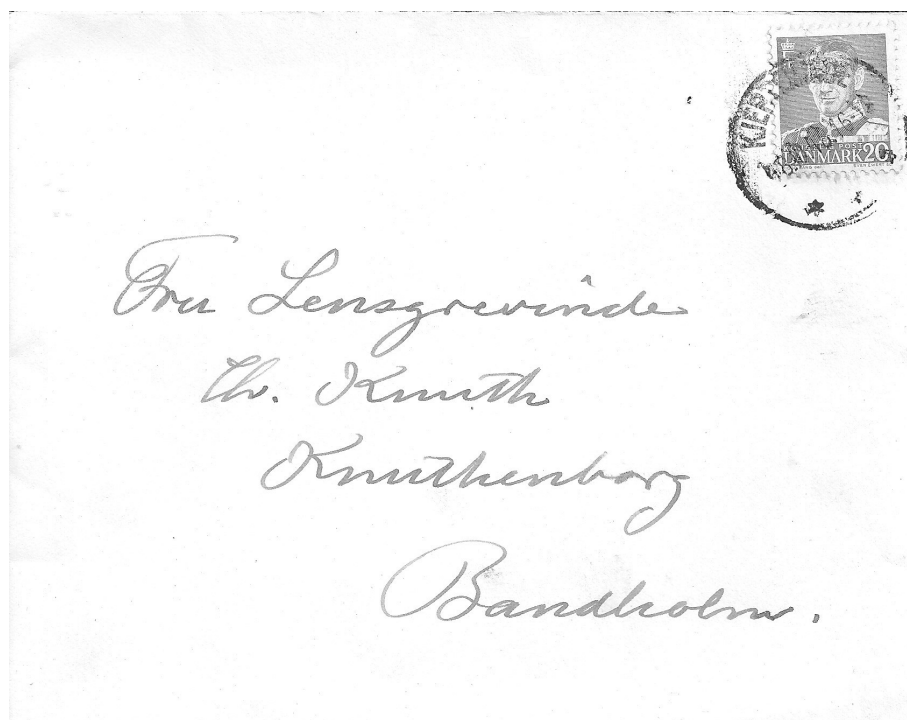 POST
DANMARK 20
Fru Lensgrevinde
th. Knuth
Knuthenborg
Bandholm.